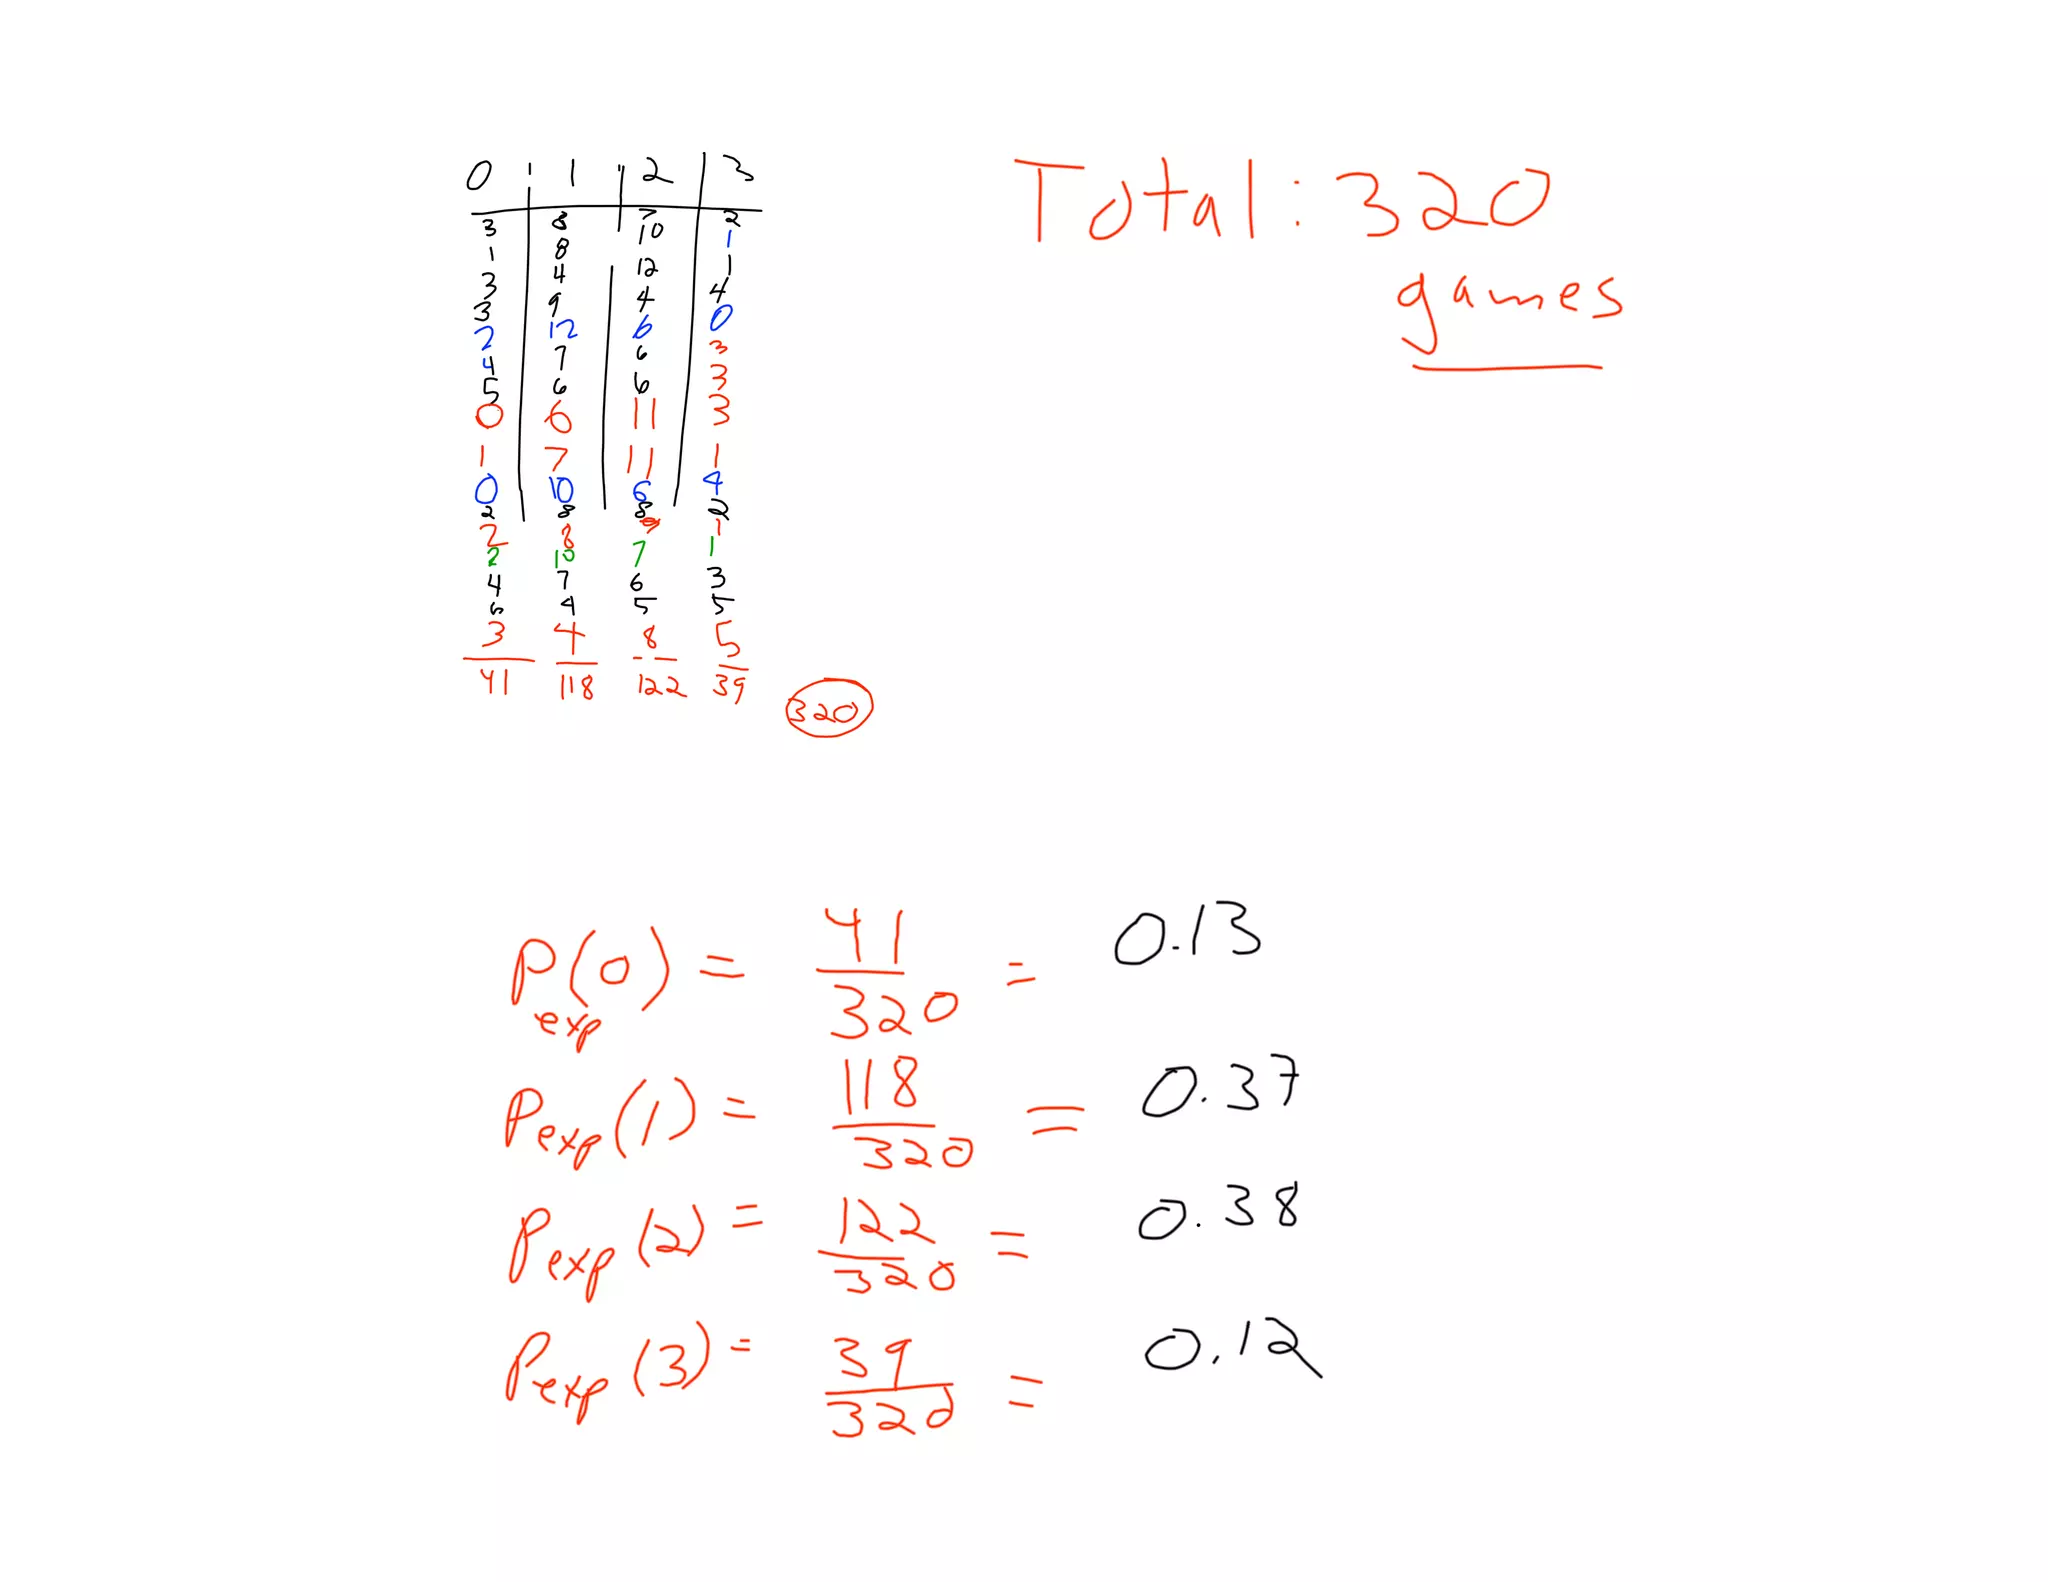 0 1 2 3
3 8 7 2
1 8 10 1
3 4 12 1
3 9 4 4
2 12 6 0
4 7 6 3
5 6 6 3
0 6 11 3
1 7 11 1
0 10 6 4
2 8 8 2
2 8 9 1
2 10 7 1
4 7 6 3
6 4 5 5
3 4 8 5
41 118 122 39
320
Total: 320
games
P exp (0) = 41/320 = 0.13
P exp (1) = 118/320 = 0.37
P exp (2) = 122/320 = 0.38
P exp (3) = 39/320 = 0.12